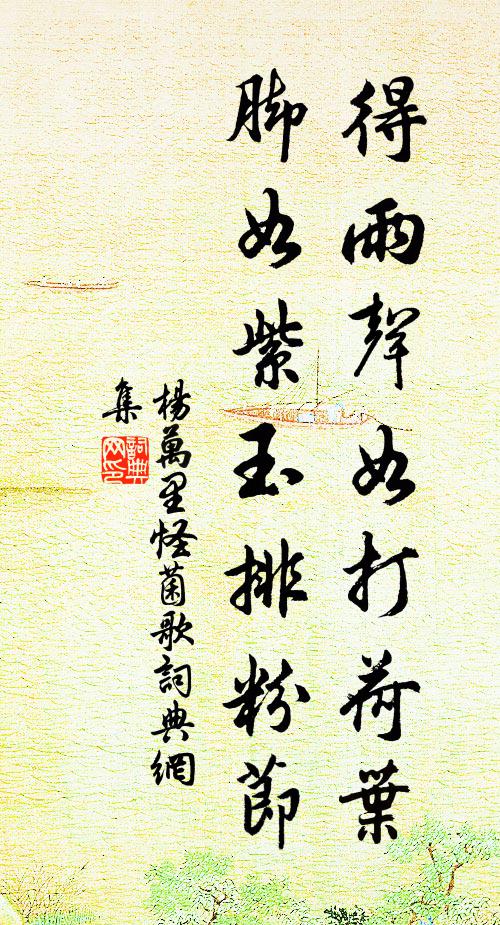 得雨聲如打荷葉
脚如紫玉排粉節
楊萬里怪菌歌詞典網
集
詞典网印